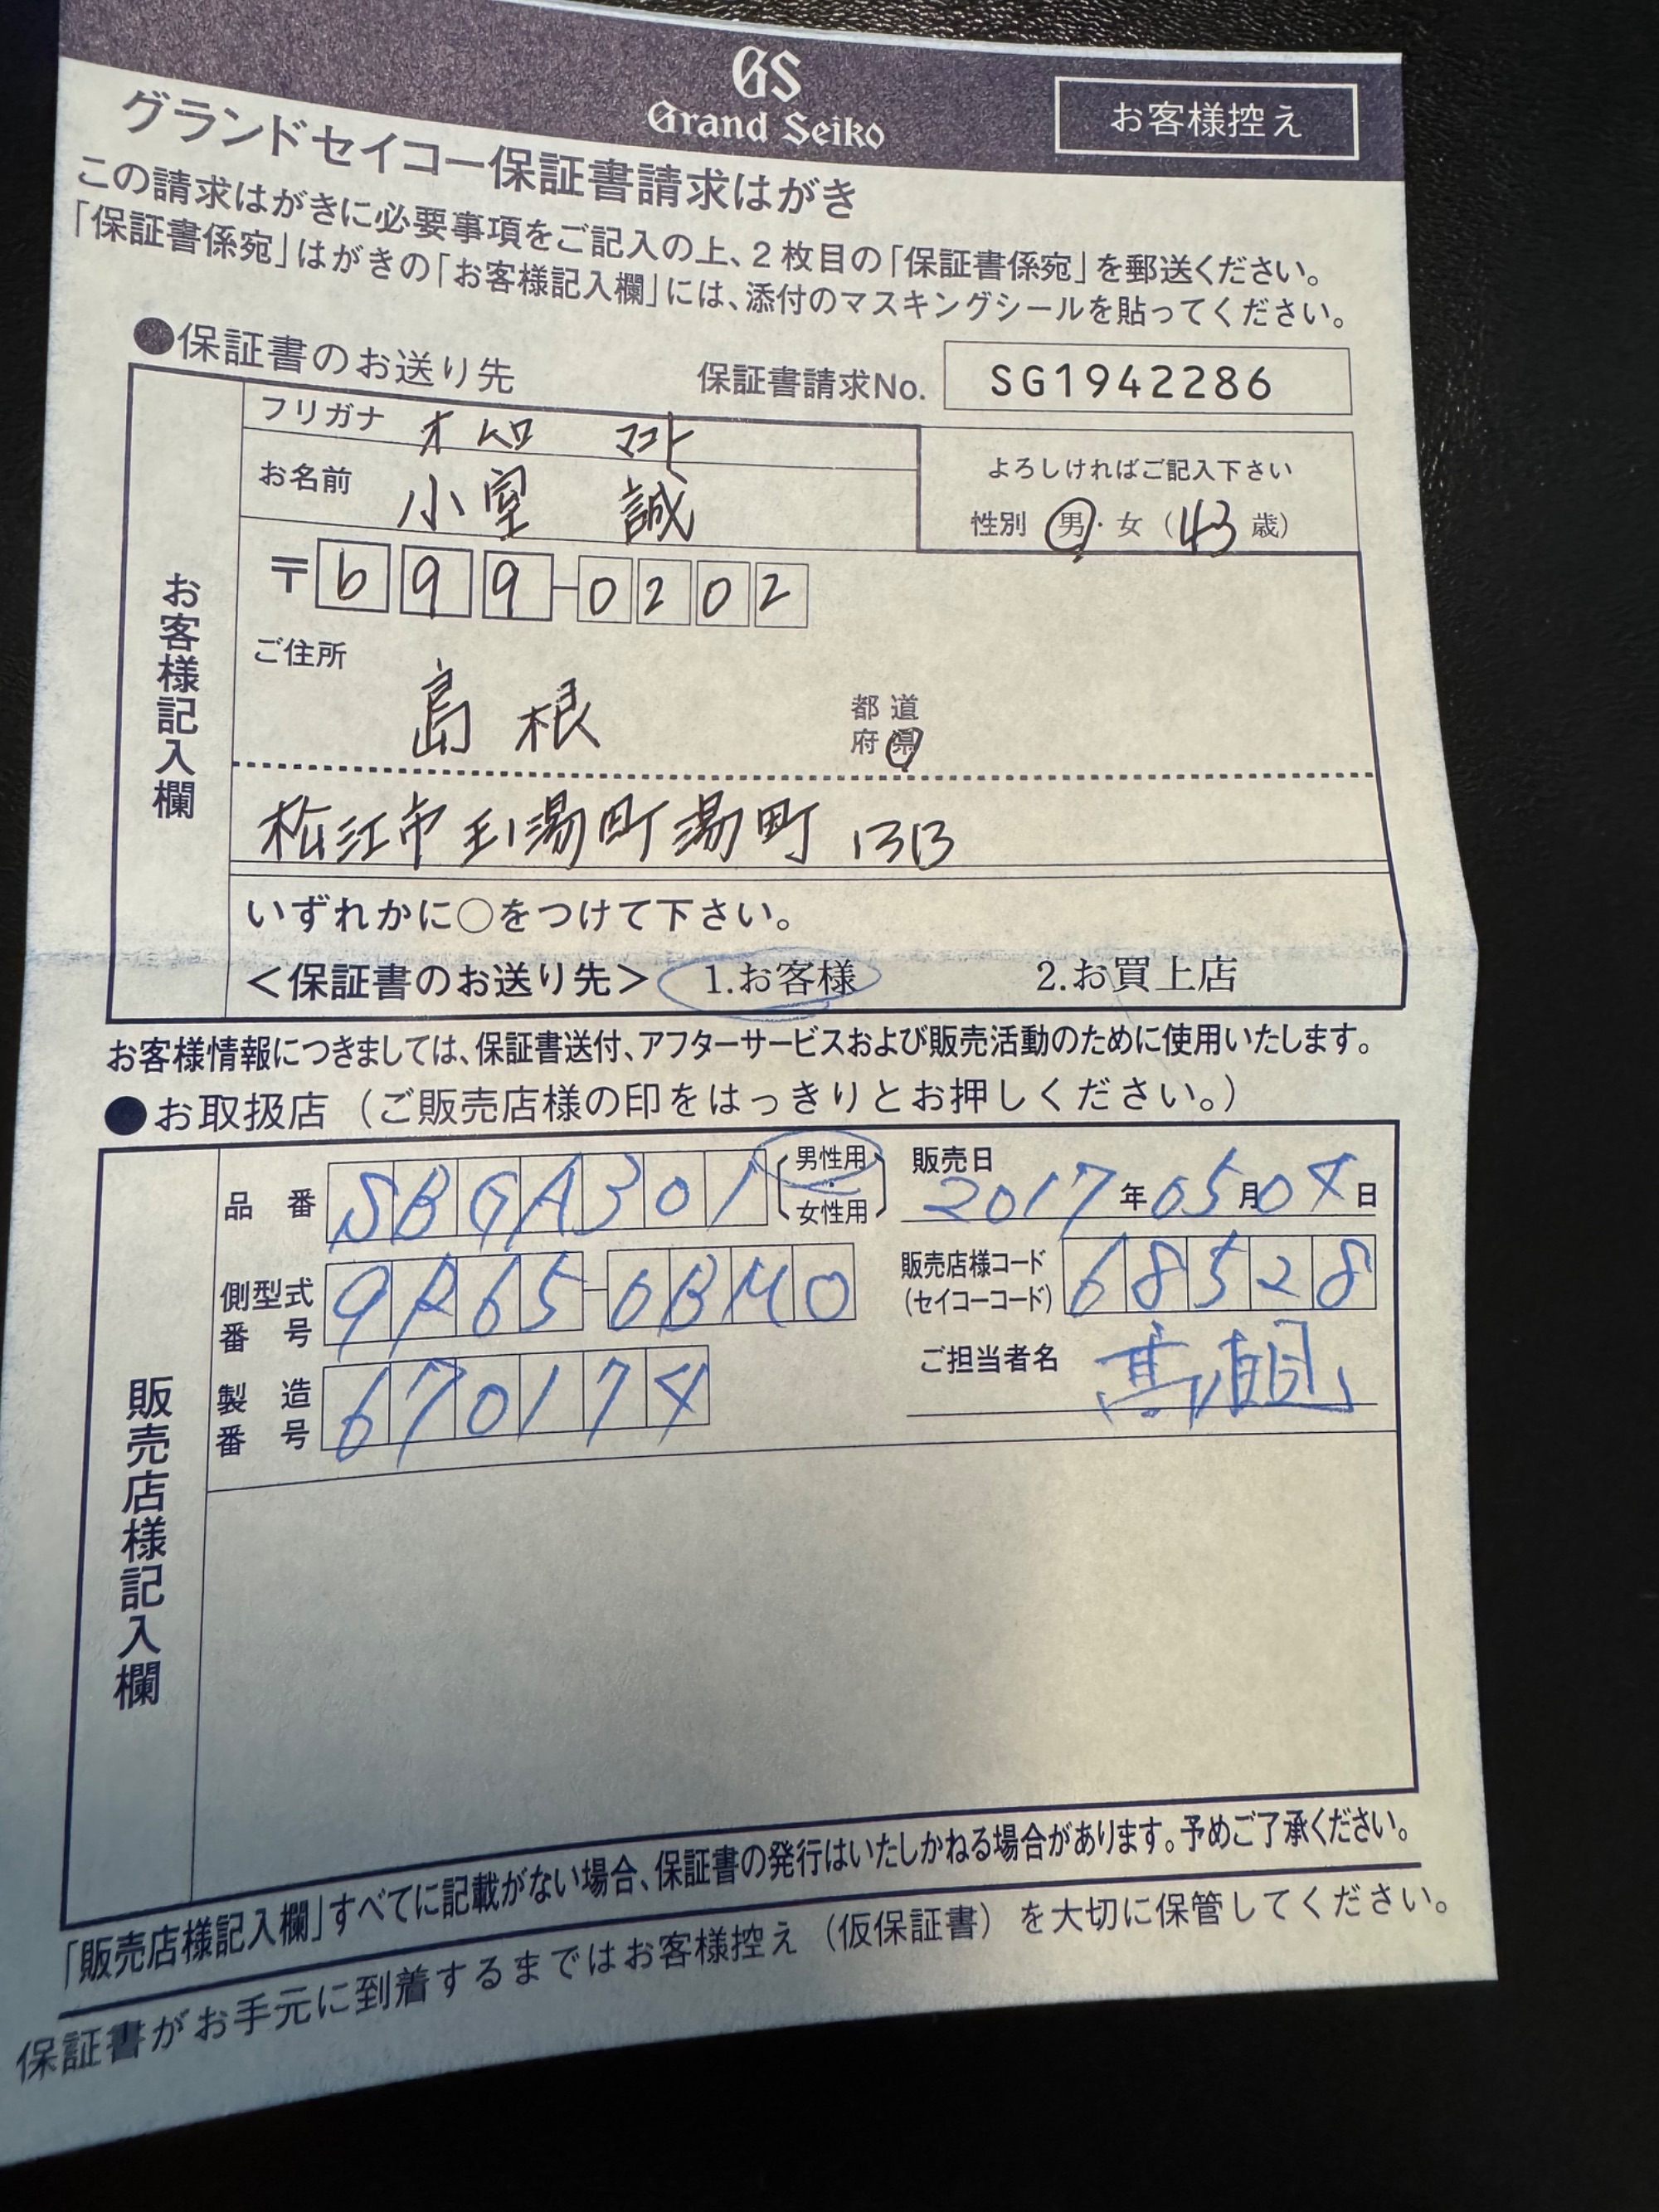 GS
Grand Seiko
お客様控え
グランドセイコー保証書請求はがき
この請求はがきに必要事項をご記入の上、2枚目の「保証書係宛」を郵送ください。
「保証書係宛」はがきの「お客様記入欄」には、添付のマスキングシールを貼ってください。
●保証書のお送り先
保証書請求No. SG1942286
お客様記入欄
フリガナ オムロ マコト
お名前 小室 誠
よろしければご記入下さい
性別 男・女 (43歳)
〒699-0202
ご住所
島根 都道府県
松江市玉湯町湯町
いずれかに○をつけて下さい。
<保証書のお送り先> 1.お客様 2.お買上店
お客様情報につきましては、保証書送付、アフターサービスおよび販売活動のために使用いたします。
●お取扱店（ご販売店様の印をはっきりとお押しください。）
販売店様記入欄
品番 SBGA301 (男性用・女性用)
販売日 2017年05月04日
側型式番号 9R65-0BM0
販売店様コード(セイコーコード) 68528
製造番号 670174
ご担当者名
「販売店様記入欄」すべてに記載がない場合、保証書の発行はいたしかねる場合があります。予めご了承ください。
保証書がお手元に到着するまではお客様控え（仮保証書）を大切に保管してください。